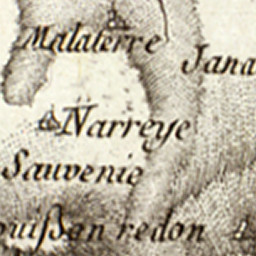 Malaterre
Jana
Narreye
Sauvenie
ouißan redon